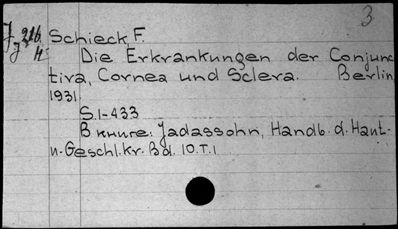 3
J 216
Schieck F.
Die Erkrankungen der Conjunc
tiva, Cornea und Sclera. Berlin
1931.
S.1-433
В книге: Jadassohn, Handb. d. Haut-
u-Geschl.kr. Bd. 10.T.1